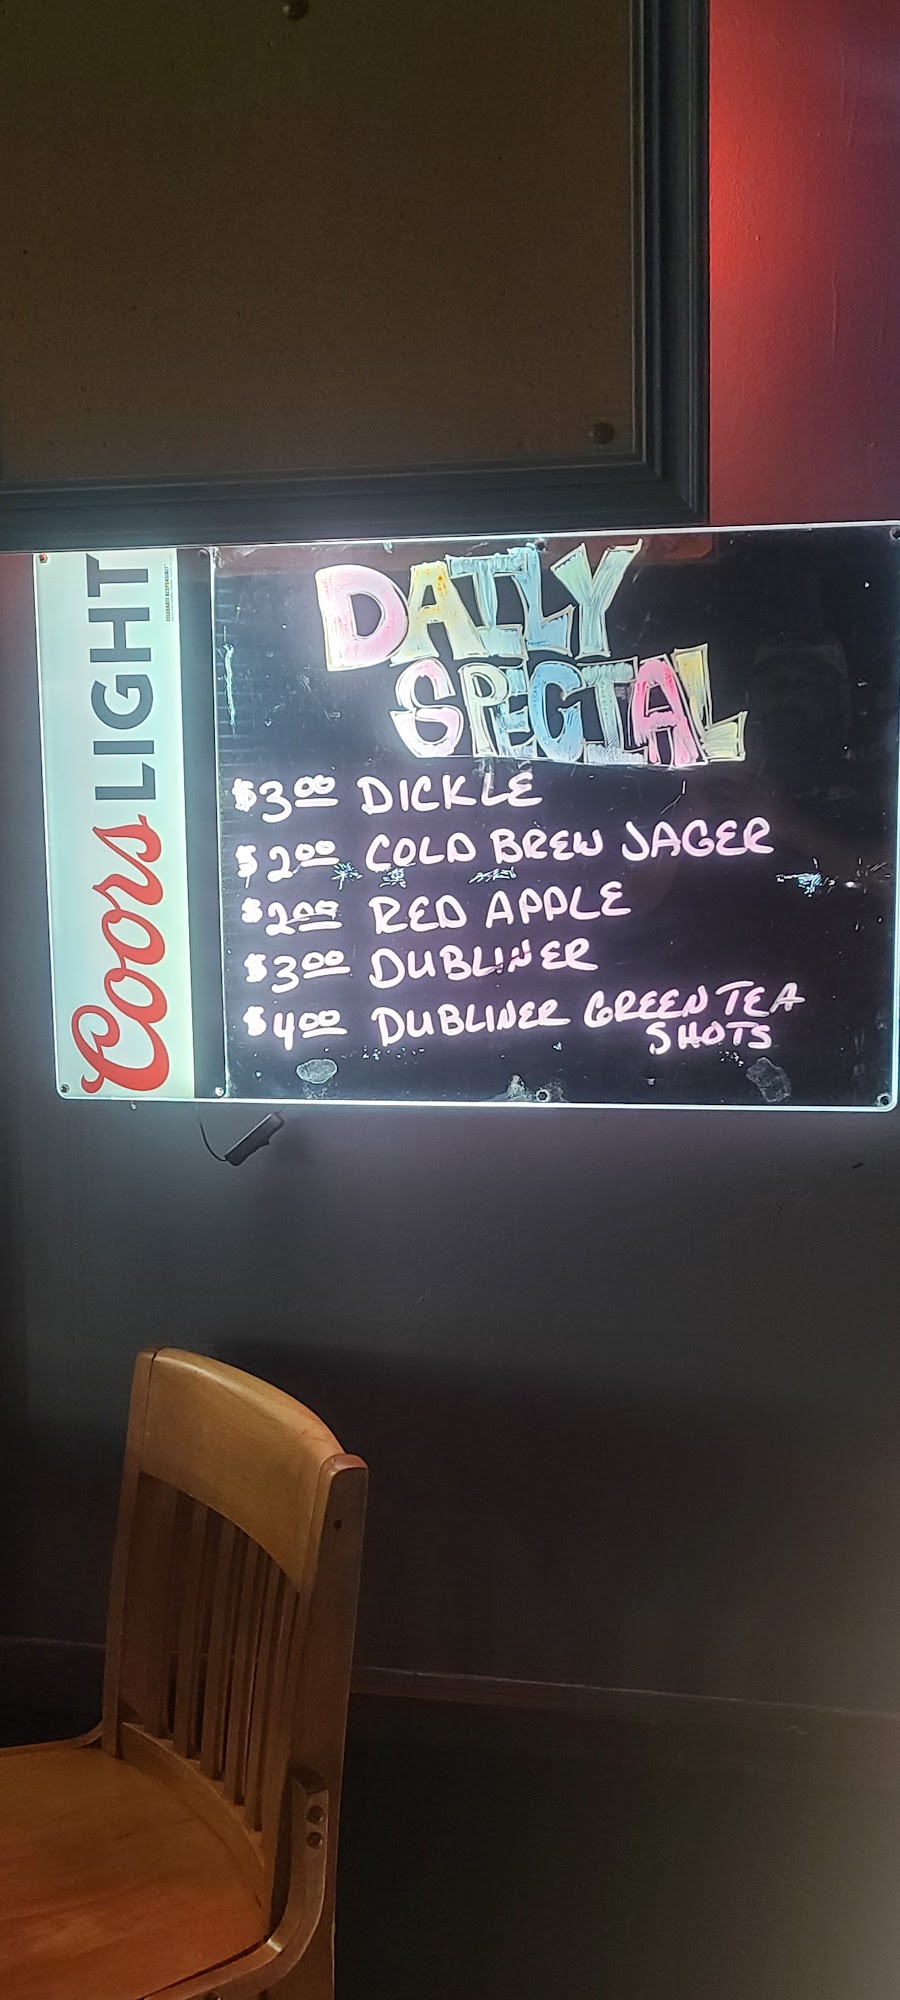 Coors LIGHT
DAILY
SPECIAL
$3.00 DICKLE
$2.00 COLD BREW JAGER
$2.00 RED APPLE
$3.00 DUBLINER
$4.00 DUBLINER GREEN TEA
SHOTS